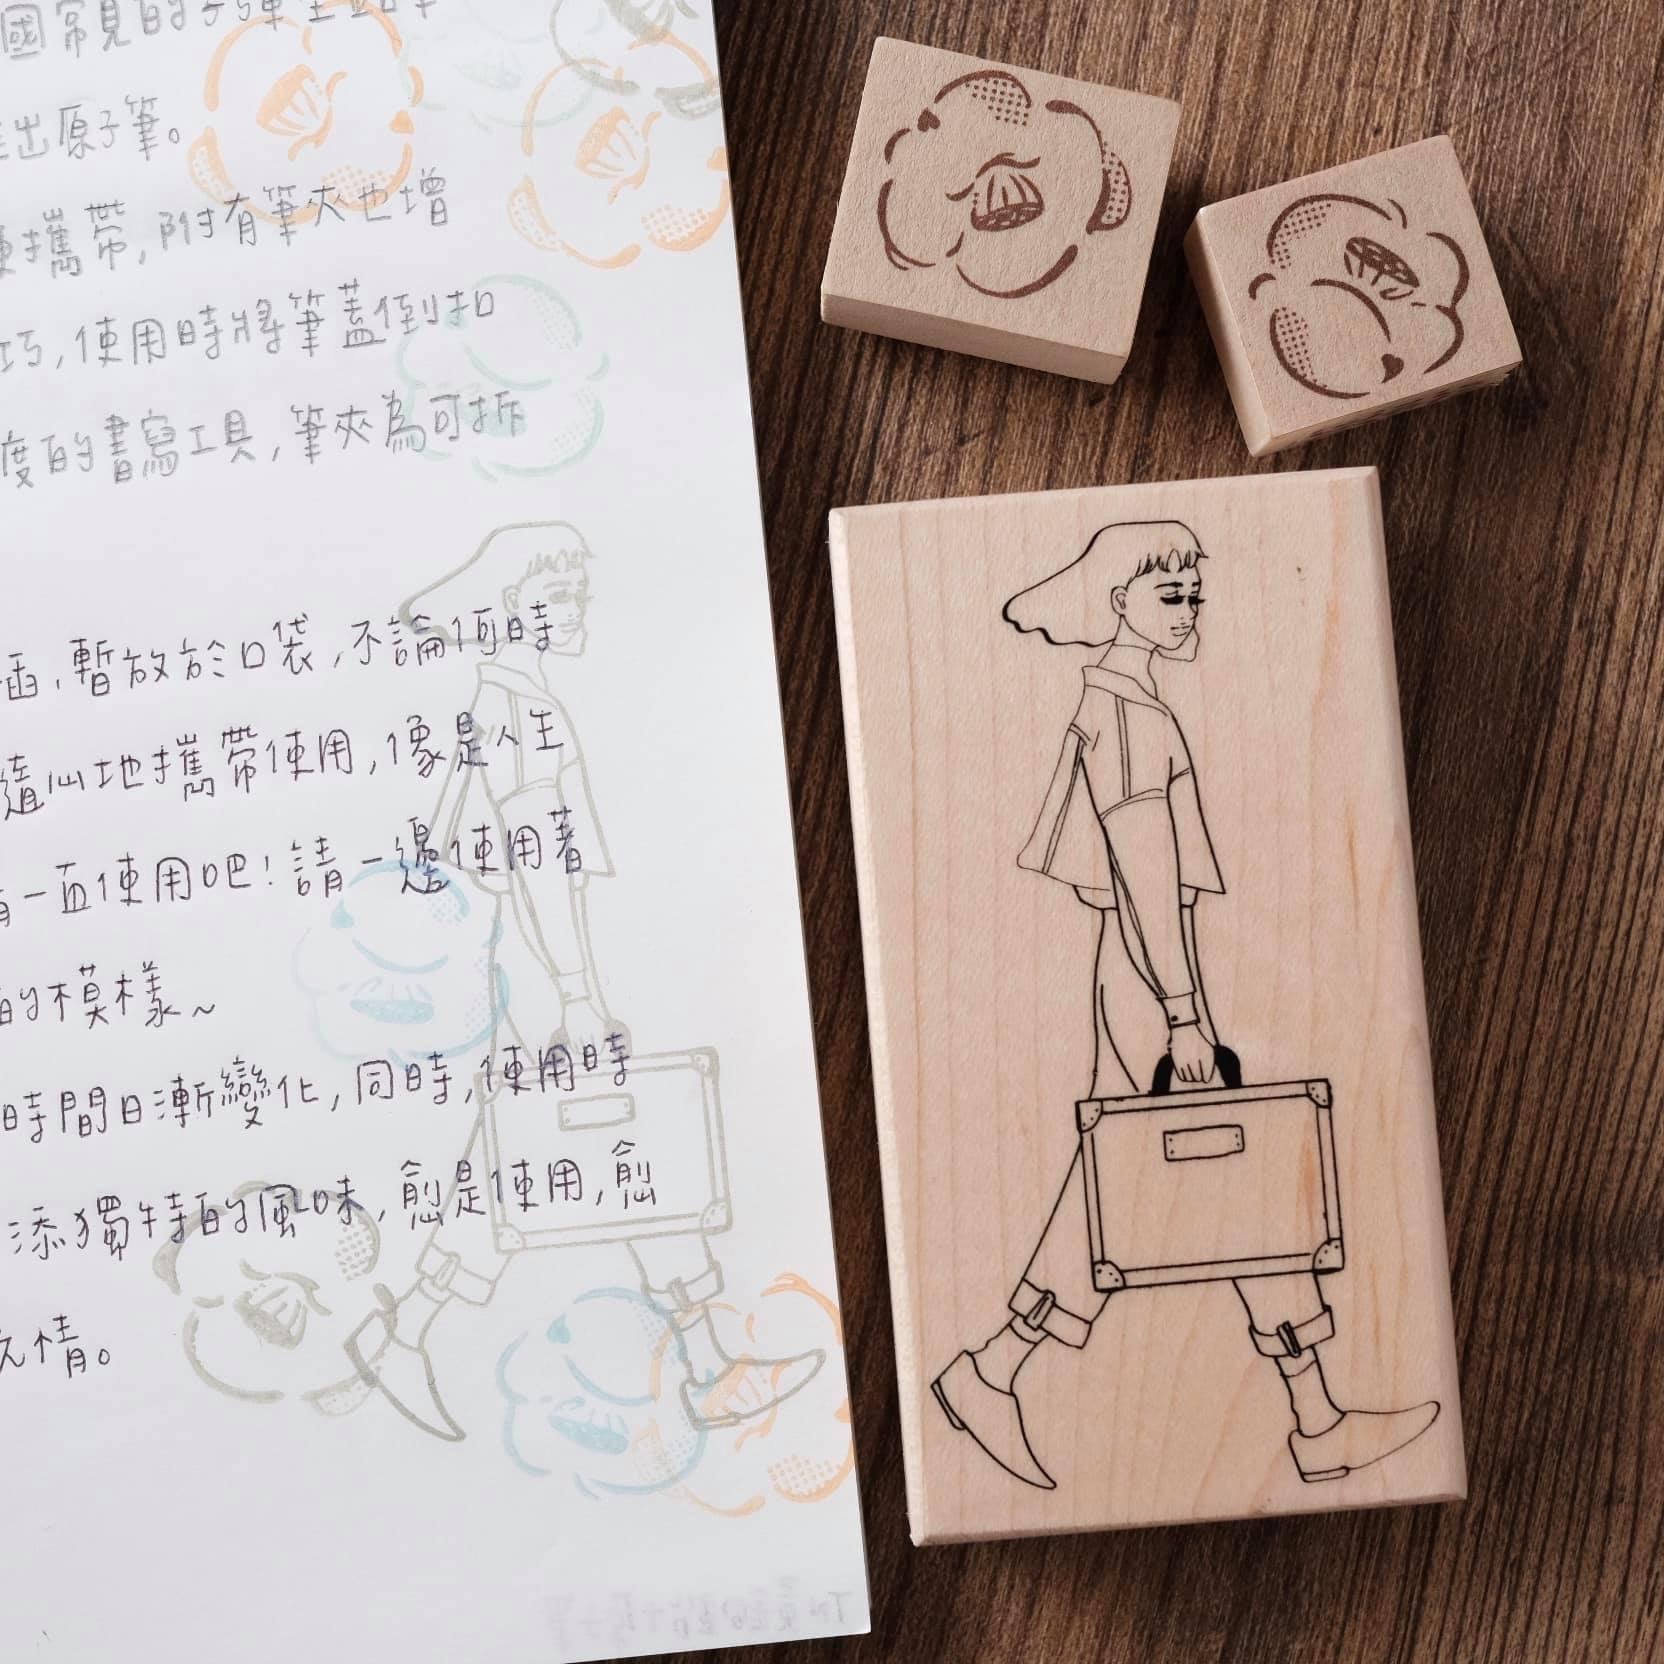 國常見的子彈型
出原子筆。
攜帶,附有筆夾也增
巧,使用時將筆蓋倒扣
度的書寫工具,筆夾為可拆
,暫放於口袋,不論何時
隨心地攜帶使用,像是人生
一直使用吧!請一邊使用著
的模樣~
時間日漸變化,同時,使用時
添獨特的風味,愈是使用,愈
情。